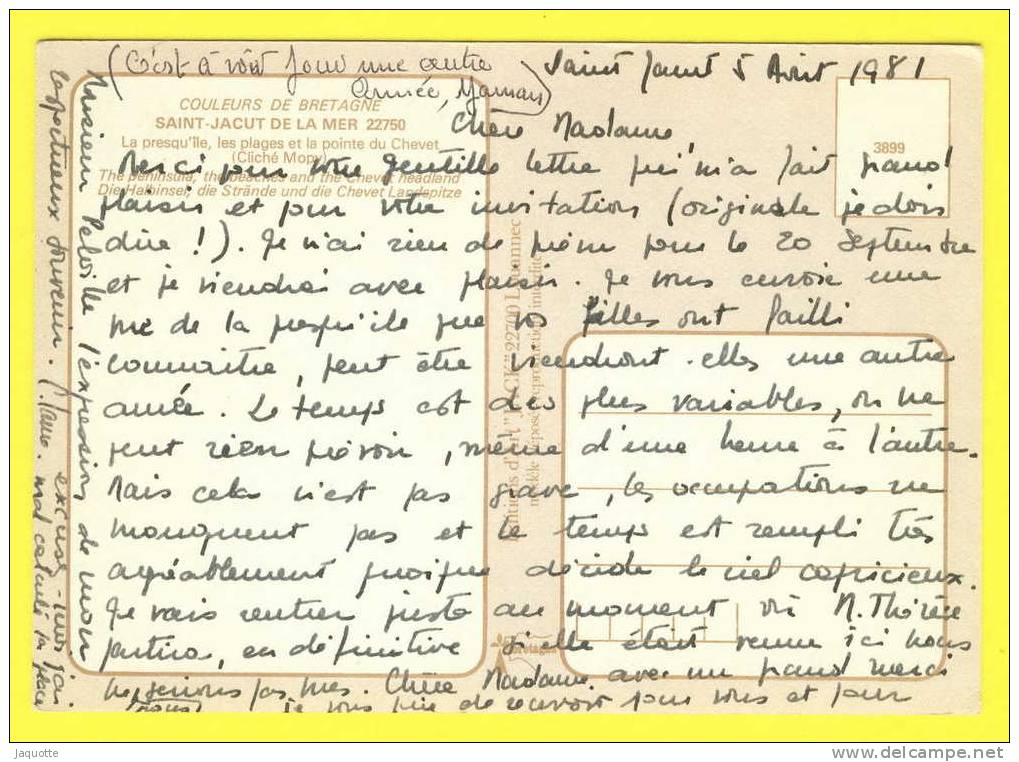 (C'est à voir pour une autre
année, Maman)
Saint Jacut 5 Août 1981
COULEURS DE BRETAGNE
SAINT-JACUT DE LA MER 22750
La presqu'île, les plages et la pointe du Chevet
(Cliché Mopy)
The peninsula, the beaches and the Chevet headland
Die Halbinsel, die Strände und die Chevet Landspitze
3899
Chère Madame
Merci pour votre gentille lettre qui m'a fait grand
plaisir et pour votre invitation (originale je dois
dire !). Je n'ai rien de prévu pour le 20 Septembre
et je viendrai avec plaisir. Je vous envoie une
vue de la presqu'île que vos filles ont failli
connaître, peut être viendront-elles une autre
année. Le temps est des plus variables, on ne
peut rien prévoir, même d'une heure à l'autre.
Mais cela n'est pas grave, les occupations ne
manquent pas et le temps est rempli très
agréablement quoique décide le ciel capricieux.
Je vais rentrer juste au moment où M. Thérèse
partira, en définitive si elle était venue ici nous
ne serions pas vues. Chère Madame avec un grand merci
(nous) je vous prie de recevoir pour vous et pour
Monsieur l'expression de mon
respectueux souvenir.
excusez-moi j'ai
mal calculé ma place
Editions d'Art "JACK" 22700 Louannec
modèle déposé reproduction interdite
Jaquotte
www.delcampe.net